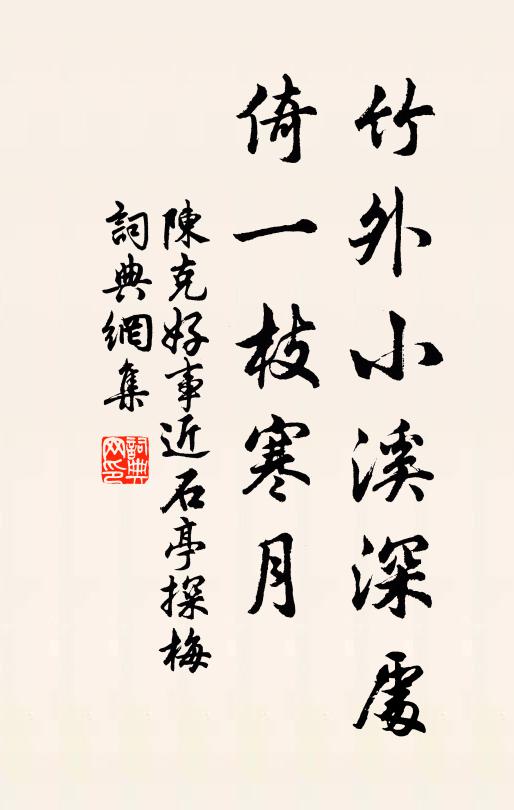 竹外小溪深處
倚一枝寒月
陳克好事近石亭探梅
詞典網集
詞典网印